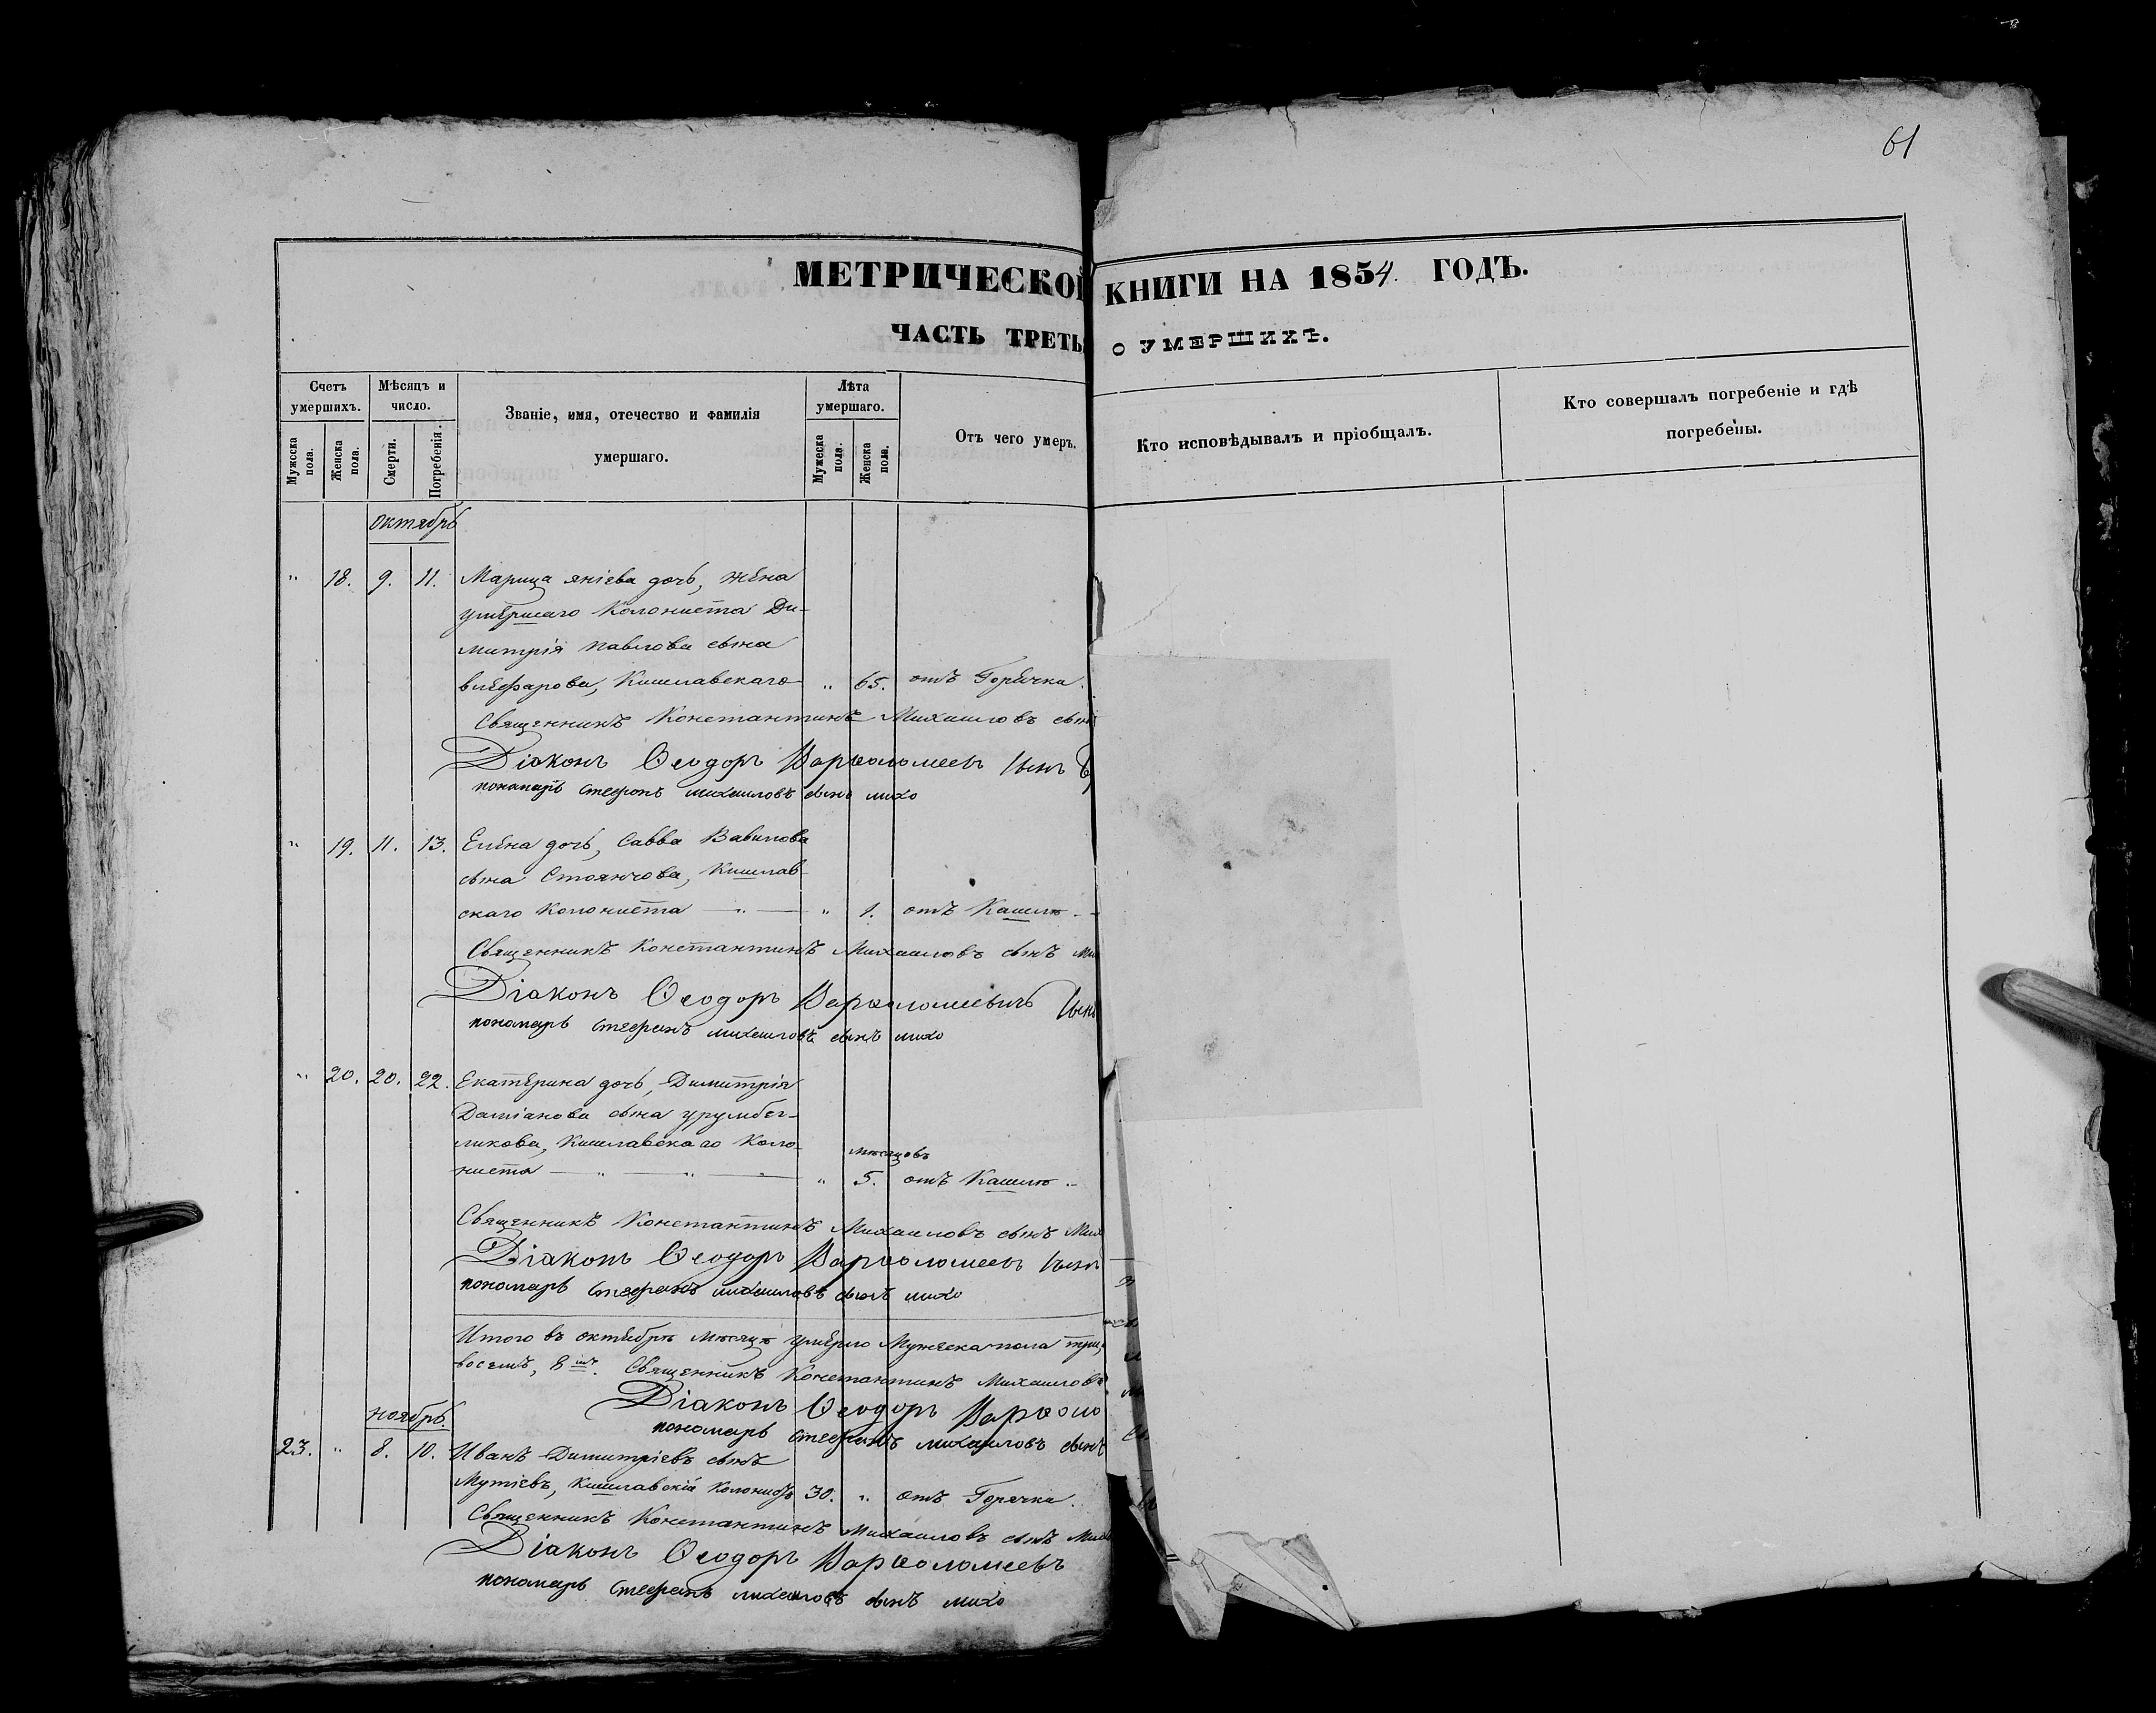 61
МЕТРИЧЕСКОЙ КНИГИ НА 1854. ГОДЪ.
ЧАСТЬ ТРЕТЬ О УМЕРШИХЪ.
Счетъ умершихъ.
Мужеска пола.
Женска пола.
Мѣсяцъ и число.
Смерти.
Погребенія.
Званіе, имя, отечество и фамилія умершаго.
Лѣта умершаго.
Мужеска пола.
Женска пола.
Отъ чего умеръ.
Кто исповѣдывалъ и пріобщалъ.
Кто совершалъ погребеніе и гдѣ погребены.
октябрь
" 18. 9. 11. Марица яніева дочь, жена
умершаго Колониста Ди-
митрія павлова сына
Кишлавскаго " 65. отъ Горячка.
Священникъ Константинъ Михаиловъ сын
Діаконъ Ѳеодоръ Варѳоломеевъ сынъ
пономарь стефанъ михаиловъ сынъ михо
" 19. 11. 13. Елена дочь, Савва Вавилова
сына Стоянчова, Кишлав-
скаго Колониста " 1. отъ Кашлю
Священникъ Константинъ Михаиловъ сынъ Ми
Діаконъ Ѳеодоръ Варѳоломеевичъ сынъ
пономарь стефанъ михаиловъ сынъ михо
" 20. 20. 22. Екатерина дочь, Димитрія
Даміанова сына урумбег-
ликова, Кишлавскаго Коло-
мѣсяцовъ
ниста " 5. отъ Кашлю
Священникъ Константинъ Михаиловъ сынъ Мих
Діаконъ Ѳеодоръ Варѳоломеевъ сынъ
пономарь стефанъ михаиловъ сынъ михо
Итого въ октебрѣ мѣсяцѣ умерло Мужеска пола три,
восемь, 8. Священникъ Константинъ Михаиловъ
Діаконъ Ѳеодоръ Варѳоло
пономарь стефанъ михаиловъ сынъ
ноябрь.
23. " 8. 10. Иванъ Димитріевъ сынъ
Мутіевъ, Кишлавскій Колонистъ 30. " отъ Горячка.
Священникъ Константинъ Михаиловъ сынъ Мих
Діаконъ Ѳеодоръ Варѳоломеевъ
пономарь стефанъ михаиловъ сынъ михо